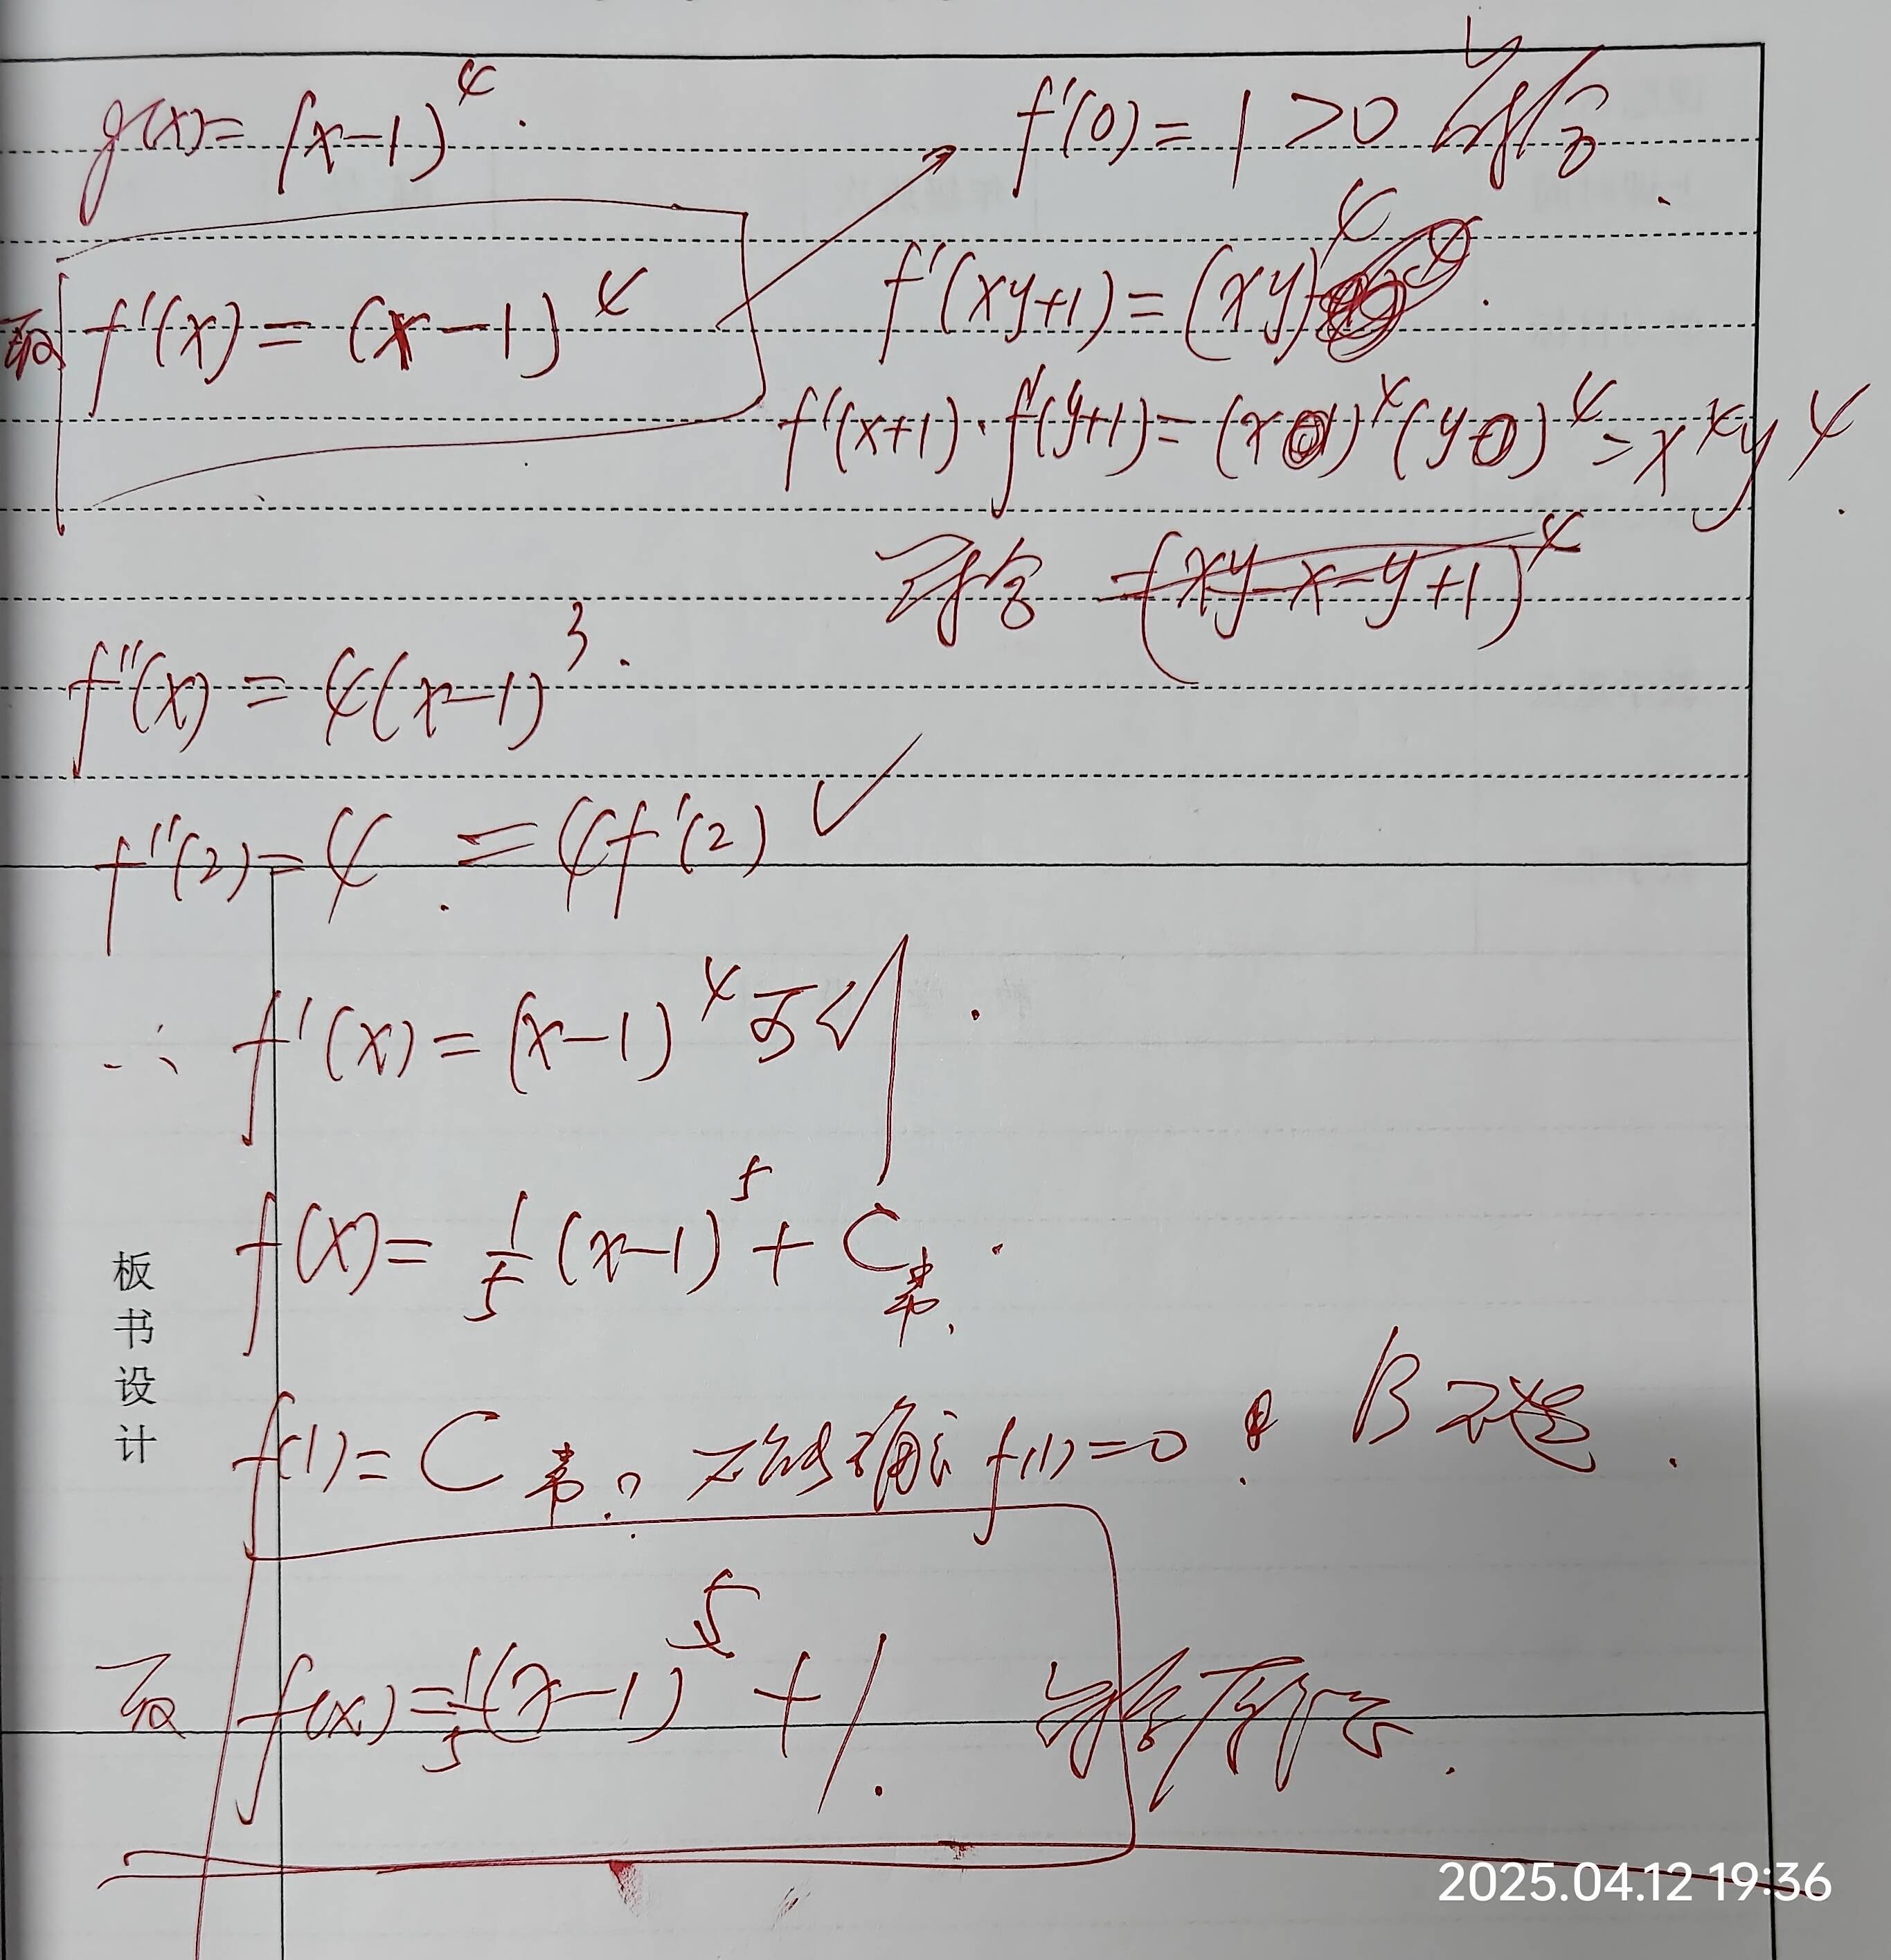 g(x) = (x-1)^4.
f'(0) = 1 > 0 符合.
取 f'(x) = (x-1)^4
f'(xy+1) = (xy)^4.
f'(x+1)·f'(y+1) = (x)^4 (y)^4 = x^4 y^4.
符合 = (xy-x-y+1)^4
f''(x) = 4(x-1)^3.
f''(2) = 4. = 4f'(2) ✓
∴ f'(x) = (x-1)^4 可以.
f(x) = 1/5 (x-1)^5 + C常.
f(1) = C常. 不能确定 f(1)=0! B 不选.
取 f(x) = 1/5 (x-1)^5 + 1.
板书设计
2025.04.12 19:36